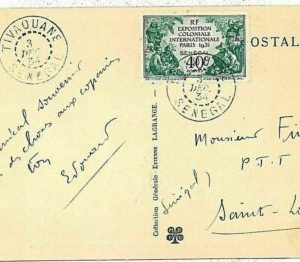 TIVAOUANE
3
DEC
34
SENEGAL
RF
EXPOSITION
COLONIALE
INTERNATIONALE
PARIS 1931
SENEGAL
40c
3
DEC
34
SENEGAL
OSTAL
souvenir
aux copains
Edouard
Collection Générale ETIENNE LAGRANGE.
Monsieur
P.T.T
(Sénégal)
Saint-L